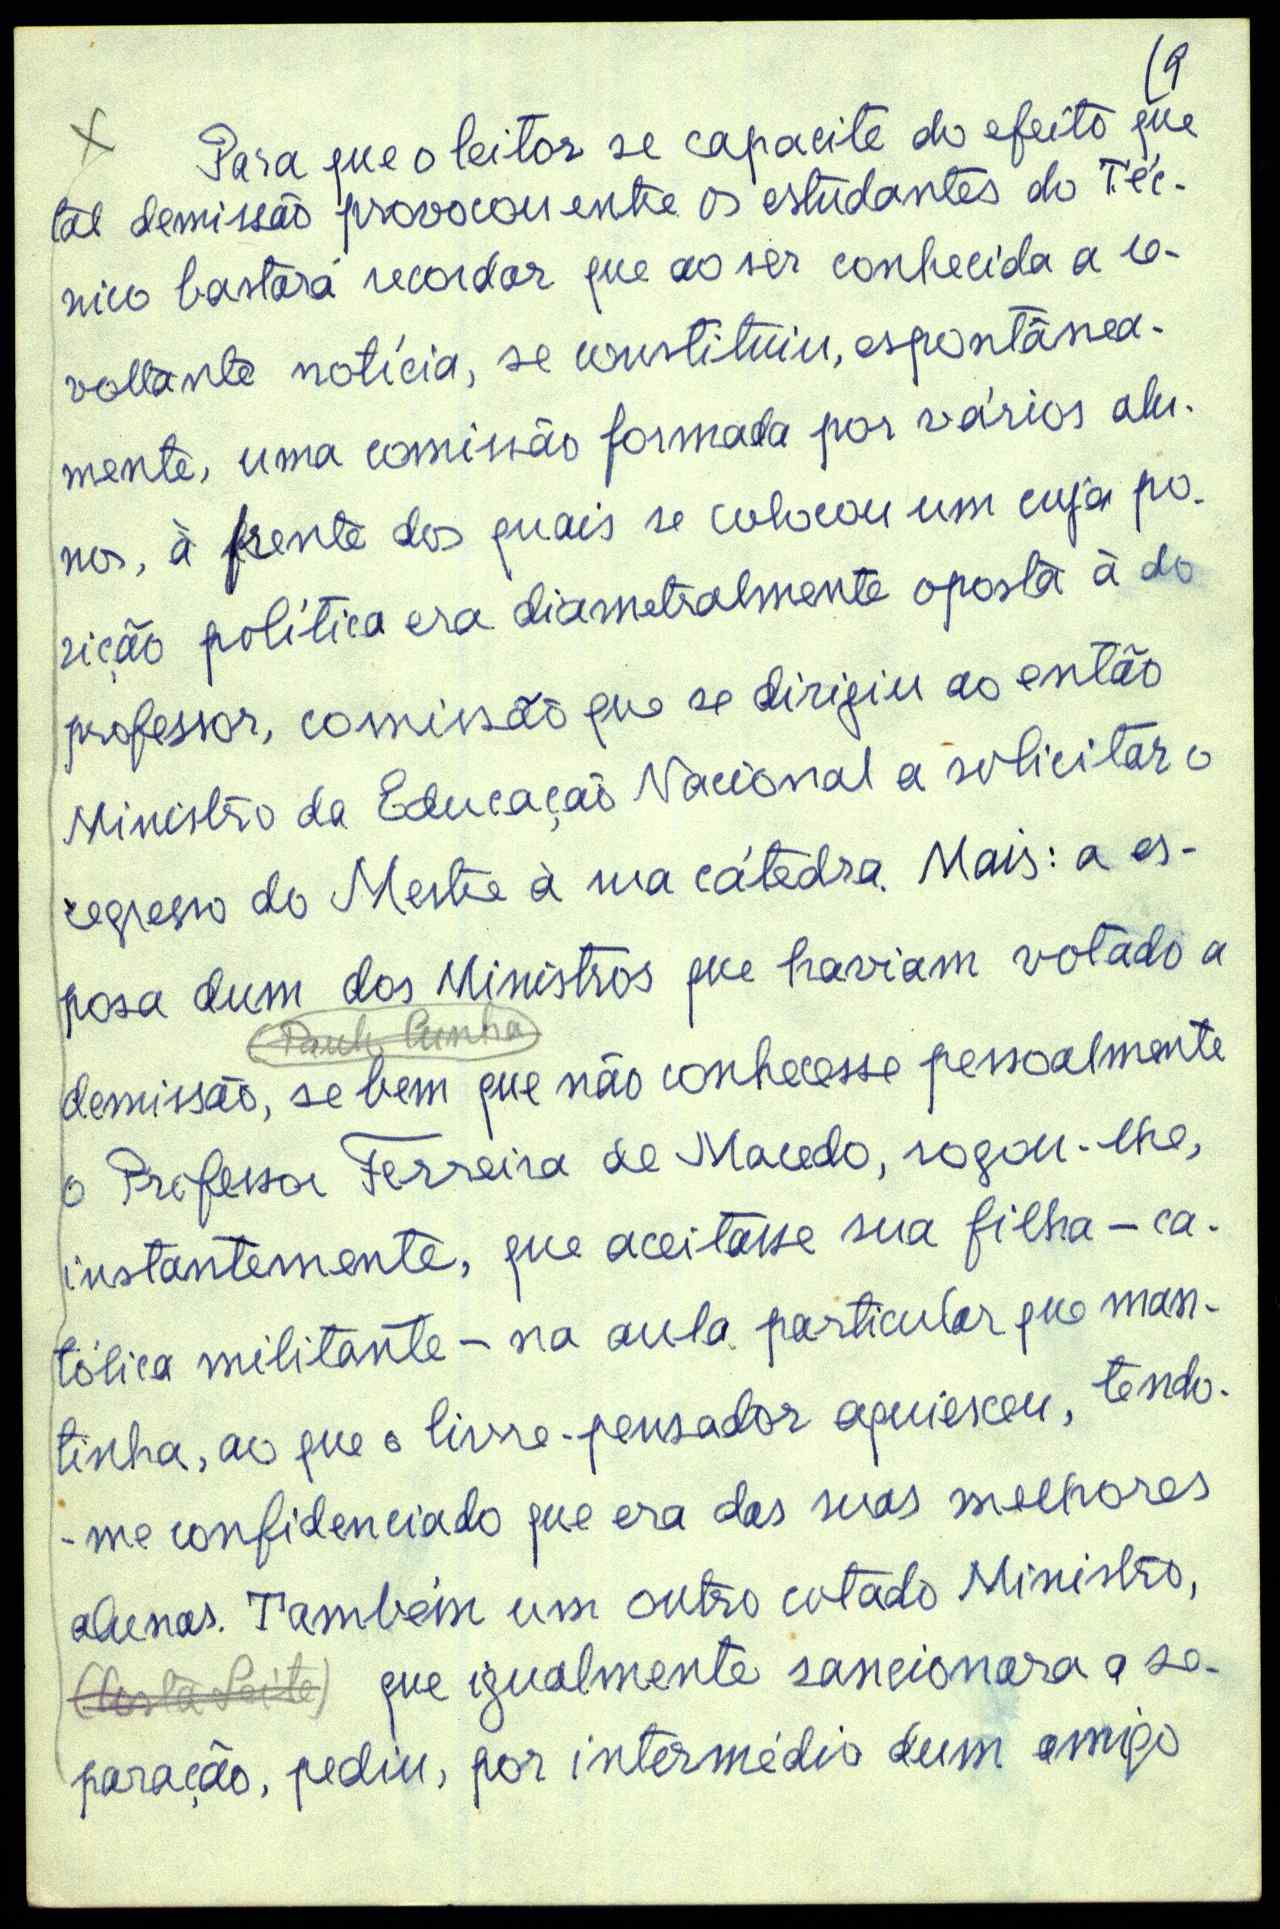 (9
X Para que o leitor se capacite do efeito que
tal demissão provocou entre os estudantes do Téc-
nico bastará recordar que ao ser conhecida a re-
voltante notícia, se constituiu, espontânea-
mente, uma comissão formada por vários alu-
nos, à frente dos quais se colocou um cuja po-
sição política era diametralmente oposta à do
professor, comissão que se dirigiu ao então
Ministro da Educação Nacional a solicitar o
regresso do Mestre à sua cátedra. Mais: a es-
posa dum dos Ministros que haviam votado a
Paulo Cunha
demissão, se bem que não conhecesse pessoalmente
o Professor Ferreira de Macedo, rogou-lhe,
instantemente, que aceitasse sua filha – ca-
tólica militante – na aula particular que man-
tinha, ao que o livre-pensador aquiesceu, tendo-
-me confidenciado que era das suas melhores
alunas. Também um outro cotado Ministro,
(Costa Leite) que igualmente sancionara a se-
paração, pediu, por intermédio dum amigo